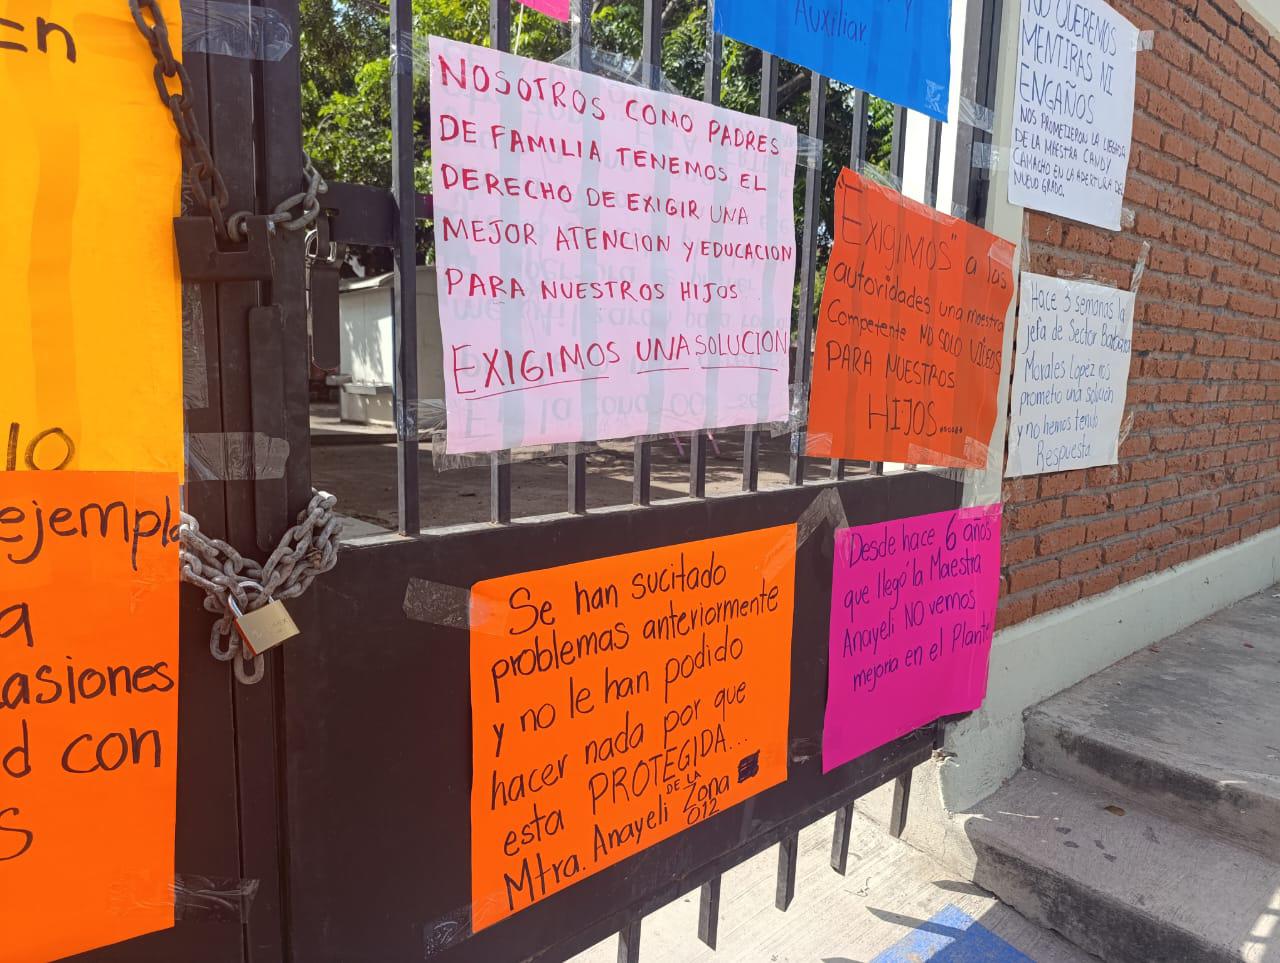 En
lo
ejemplo
a
asiones
d con
s
NOSOTROS COMO PADRES
DE FAMILIA TENEMOS EL
DERECHO DE EXIGIR UNA
MEJOR ATENCION Y EDUCACION
PARA NUESTROS HIJOS..
EXIGIMOS UNA SOLUCION
Y
Auxiliar.
"Exigimos" a las
autoridades una maestra
Competente NO SOLO VIDEOS
PARA NUESTROS
HIJOS......
NO QUEREMOS
MENTIRAS NI
ENGAÑOS
NOS PROMETIERON LA LLEGADA
DE LA MAESTRA CANDY
CAMACHO EN LA APERTURA DEL
NUEVO GRADO.
Hace 3 semanas la
jefa de Sector Barbara
Morales Lopez nos
prometio una solución
y no hemos tenido
Respuesta
Se han sucitado
problemas anteriormente
y no le han podido
hacer nada por que
esta PROTEGIDA...
Mtra. Anayeli DE LA Zona
012
Desde hace 6 años
que llegó la Maestra
Anayeli NO vemos
mejoria en el Plantel